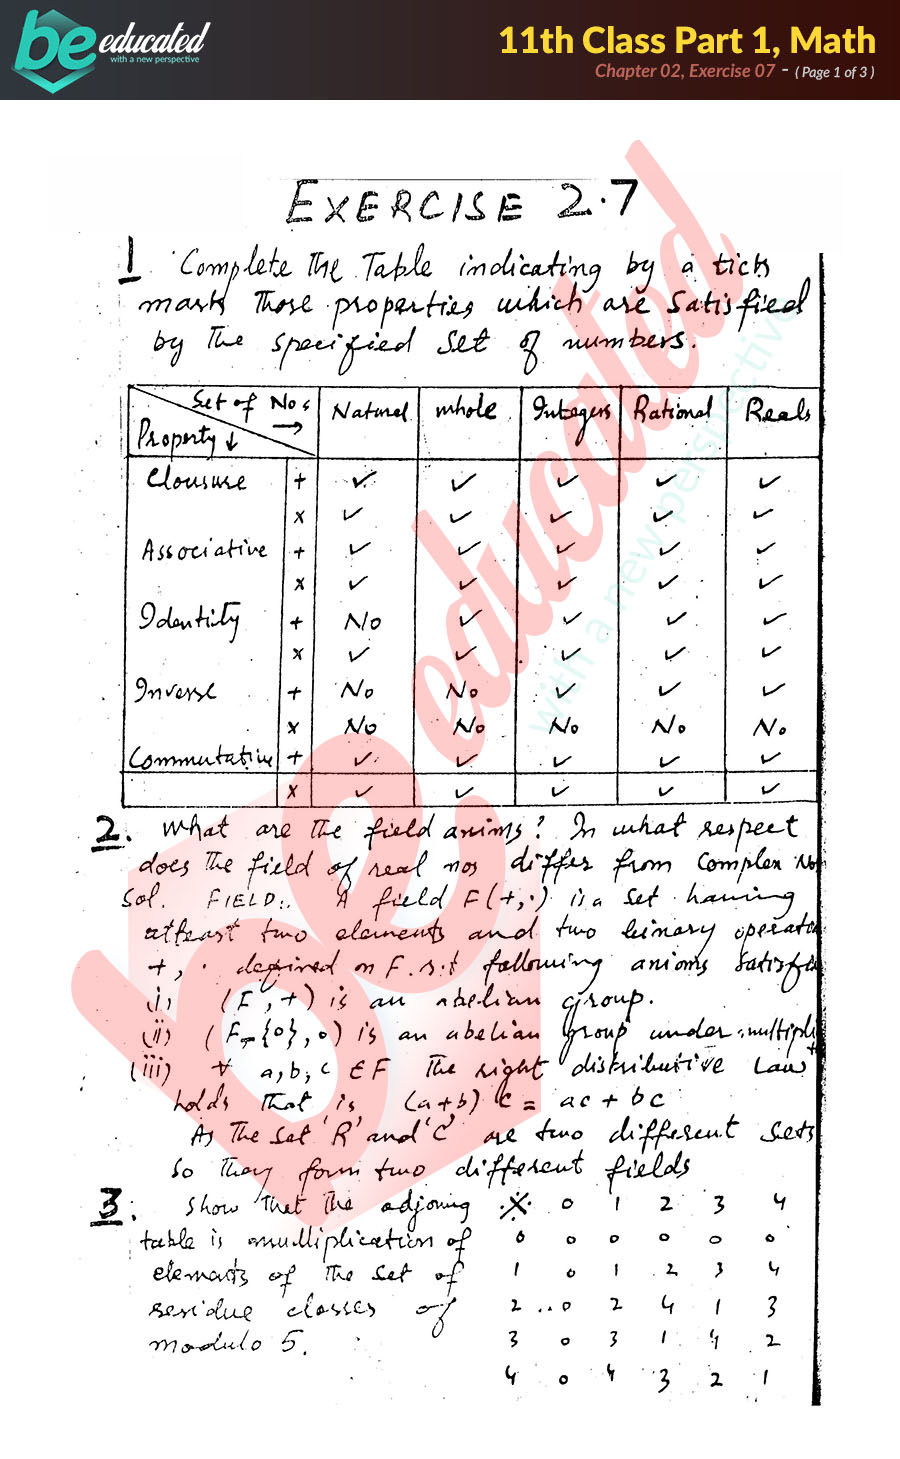 be educated
with a new perspective
11th Class Part 1, Math
Chapter 02, Exercise 07 - ( Page 1 of 3 )
EXERCISE 2.7
1 Complete The Table indicating by a tick
mark Those properties which are Satisfied
by The specified set of numbers.
Set of Nos → Natural whole Integers Rational Reals
Property ↓
Clousure + ✓ ✓ ✓ ✓ ✓
x ✓ ✓ ✓ ✓ ✓
Associative + ✓ ✓ ✓ ✓ ✓
x ✓ ✓ ✓ ✓ ✓
Identity + No ✓ ✓ ✓ ✓
x ✓ ✓ ✓ ✓ ✓
Inverse + No No ✓ ✓ ✓
x No No No No No
Commutative + ✓ ✓ ✓ ✓ ✓
x ✓ ✓ ✓ ✓ ✓
2. What are The field anims? In what respect
does The field of real nos differ from Complex No
Sol. FIELD:. A field F(+,·) is a set having
atleast two elements and two binary operato
+, · defined on F. s.t following anioms Satisfi
(i) (F, +) is an abelian group.
(ii) (F-{0}, o) is an abelian group under multipli
(iii) ∀ a, b, c ∈ F The right distributive Law
holds That is (a+b) c = ac + bc
As The Set 'R' and 'C' are two different sets
So They form two different fields
3. Show That The adjoing
table is multiplication of
elements of The Set of
residue classes of
modulo 5.
X 0 1 2 3 4
0 0 0 0 0 0
1 0 1 2 3 4
2 0 2 4 1 3
3 0 3 1 4 2
4 0 4 3 2 1
be educated
with a new perspective